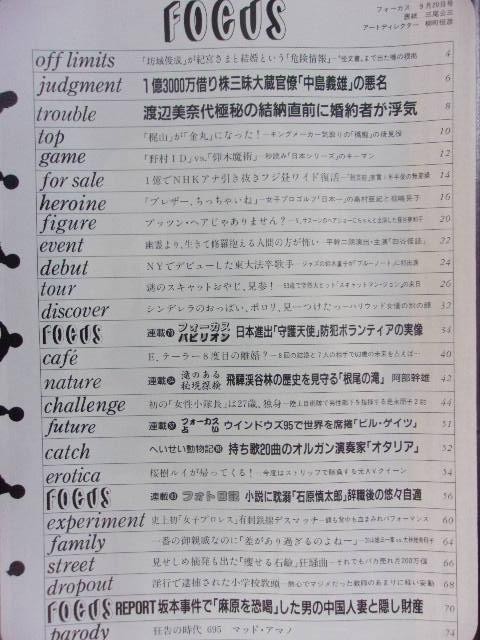 FOCUS
フォーカス 9月20日号
表紙 三尾公三
アートディレクター
off limits 「坊城俊成」が紀宮さまと結婚という「危険情報」 4
judgment 1億3000万借り株三昧大蔵官僚「中島義雄」の悪名 6
trouble 渡辺美奈代極秘の結納直前に婚約者が浮気 8
top 「梶山」が「金丸」になった! 10
game 「野村ID」vs.「仰木魔術」―秒読み「日本シリーズ」のキーマン 12
for sale 1億でNHKアナ引き抜きフジ昼ワイド復活 14
heroine 「ブレザー、ちっちゃいね」―女子プロゴルフ「日本一」の 16
figure ブッツン・ヘアじゃありません? 20
event 幽霊より、生きて修羅抱える人間の方が怖い―平幹二朗演出・主演「四谷怪談」 22
debut NYでデビューした東大法卒歌手 24
tour 謎のスキャットおやじ、見参! 26
discover シンデレラのおっぱい、ポロリ、見―つけたっ―ハリウッド女優の別の顔 32
FOCUS 連載 フォーカスパビリオン 日本進出「守護天使」防犯ボランティアの実像 34
café E、テーラー8度目の離婚? 40
nature 連載 滝のある秘境探検 飛騨渓谷林の歴史を見守る「根尾の滝」 阿部幹雄 42
challenge 初の「女性小隊長」は27歳、独身 44
future 連載 フォーカス占い ウインドウズ95で世界を席捲「ビル・ゲイツ」 51
catch へいせい動物記 持ち歌20曲のオルガン演奏家「オタリア」 52
erotica 桜樹ルイが帰ってくる!―今度はストリップで勝負する元AVクイーン 54
FOCUS 連載 フォト日記 小説に耽溺「石原慎太郎」辞職後の悠々自適 56
experiment 史上初「女子プロレス」有刺鉄線デスマッチ 60
family 一番の御親戚なのに「差があり過ぎるのよねー」 64
street 見せしめ摘発も出た「痩せる石鹸」狂騒曲―それでもバカ売れ月200万個 66
dropout 淫行で逮捕された小学校教頭 68
FOCUS REPORT 坂本事件で「麻原を恐喝」した男の中国人妻と隠し財産 70
parody 狂告の時代 695 マッド・アマノ 74